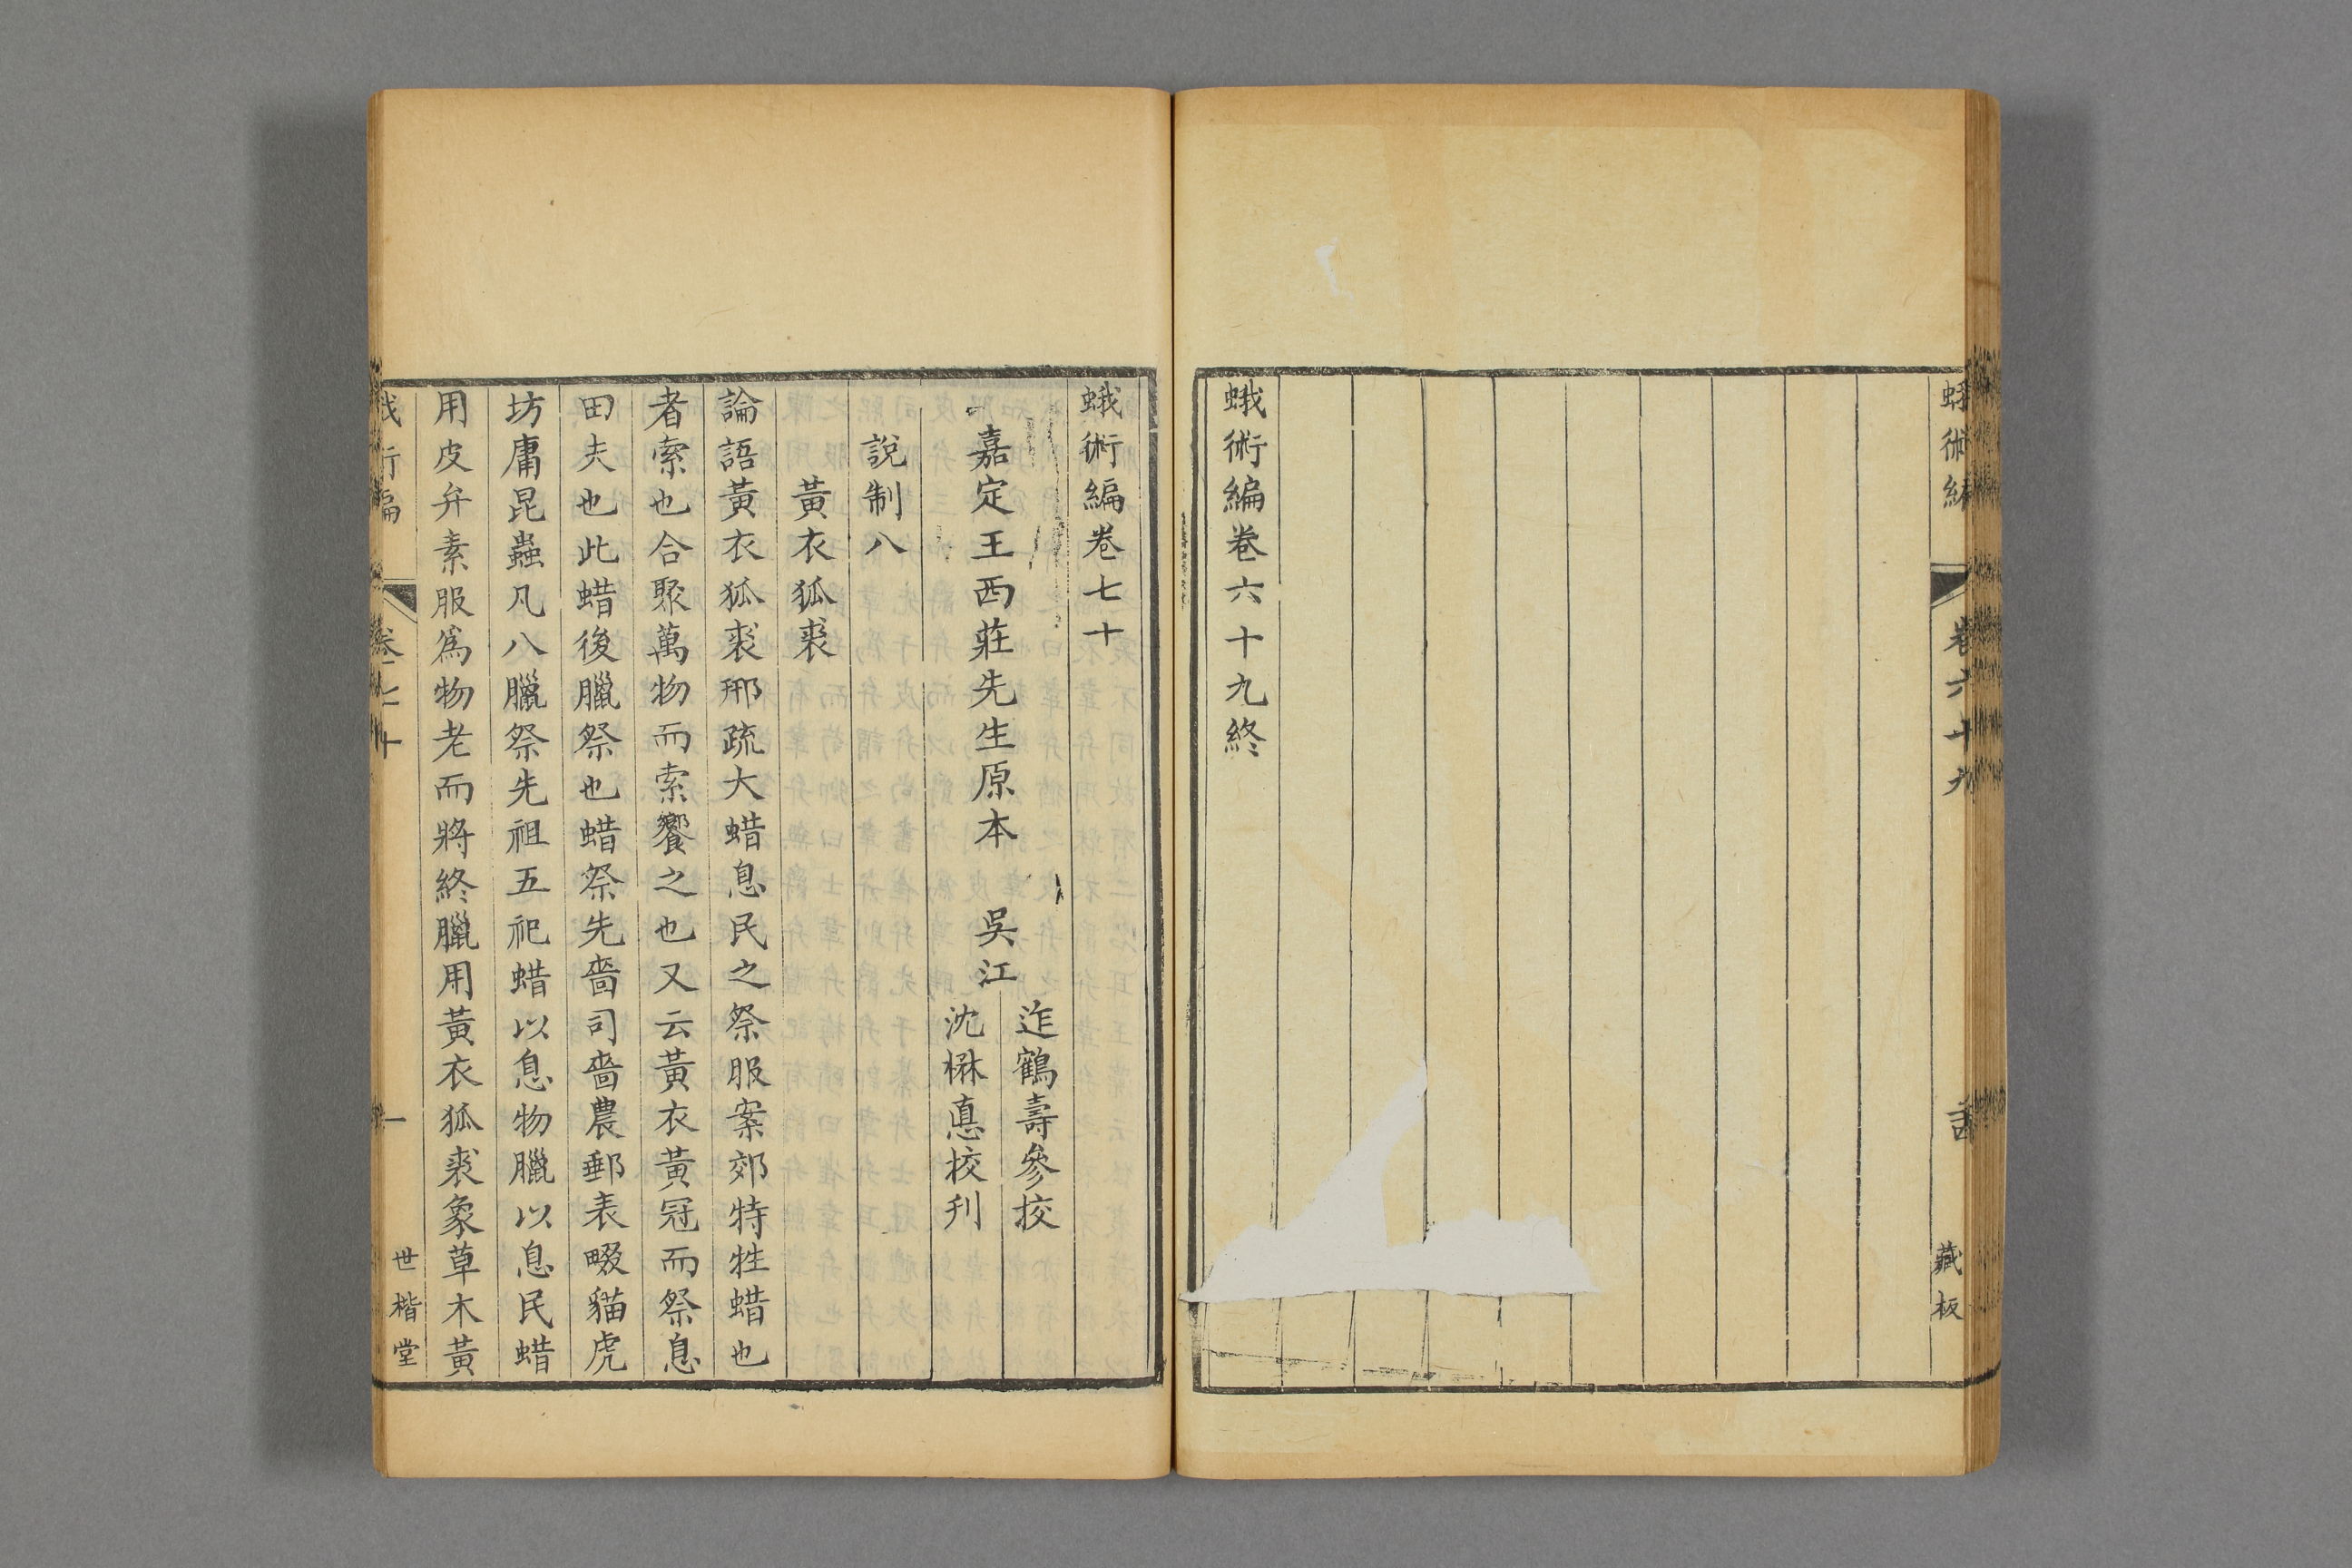 蛾術編
卷六十九
藏板
蛾術編卷六十九終
蛾術編卷七十
嘉定王西莊先生原本　吳江
迮鶴壽參挍
沈楙悳挍刋
說制八
黃衣狐裘
論語黃衣狐裘邢疏大蜡息民之祭服案郊特牲蜡也
者索也合聚萬物而索饗之也又云黃衣黃冠而祭息
田夫也此蜡後臘祭也蜡祭先嗇司嗇農郵表畷貓虎
坊庸昆蟲凡八臘祭先祖五祀蜡以息物臘以息民蜡
用皮弁素服爲物老而將終臘用黃衣狐裘象草木黃
蛾術編
卷七十
一
世楷堂